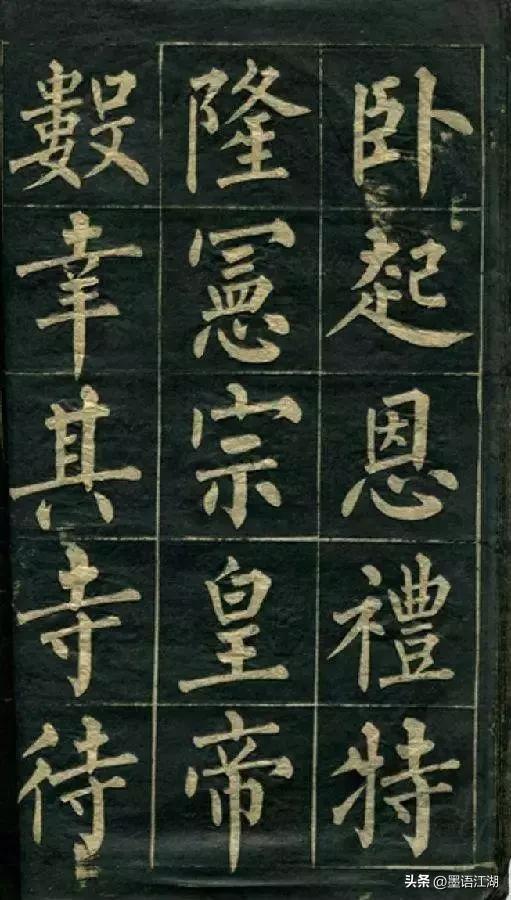 卧起恩禮特
隆憲宗皇帝
數幸其寺待
头条 @墨语江湖